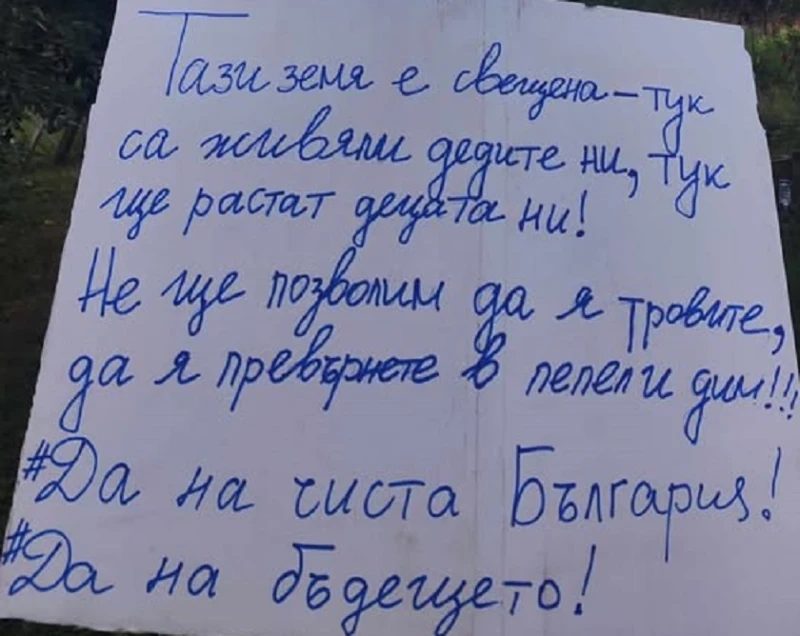 Тази земя е свещена – тук
са живяли дедите ни, тук
ще растат децата ни!
Не ще позволим да я тровите,
да я превърнете в пепел и дим!!!
#Да на чиста България!
#Да на бъдещето!